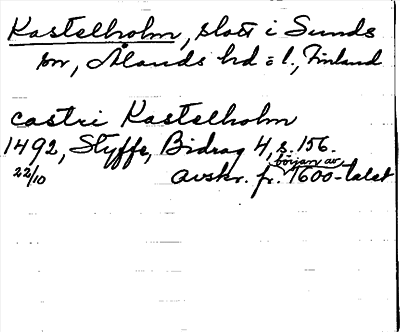 Kastelholm, slott i Sunds
sn, Ålands hd o l., Finland
castri Kastelholm
1492, Styffe, Bidrag 4, s. 156.
22/10 avskr. fr. början av 1600-talet